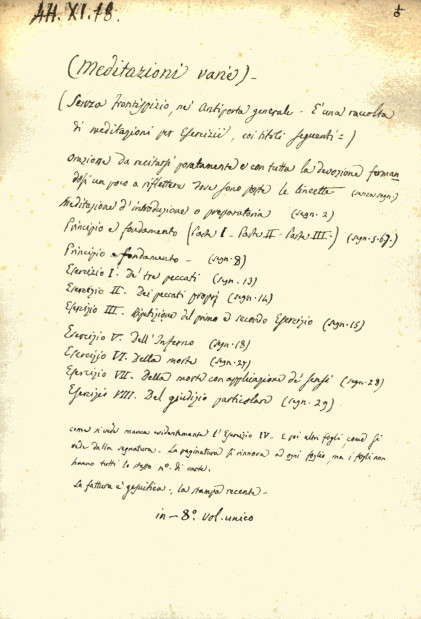 AH. XI. 18.
(Meditazioni varie)_
(Senza frontispizio, nè Antiporta generale - È una raccolta
di meditazioni per Esercizii, coi titoli seguenti=)
Orazione da recitarsi posatamente e con tutta la devozione forman
dosi un poco a riflettere dove sono poste le lineette (senza sign.)
Meditazione d'introduzione o preparatoria (sign. 2)
Principio e fondamento (Parte I - Parte II - Parte III.) (sign. 5. 6 7.)
Principio e fondamento - (sign. 8)
Esercizio I. De' tre peccati (sign. 13)
Esercizio II. Dei peccati proprj (sign. 14)
Esercizio III. Ripetizione del primo e secondo Esercizio (sign. 15)
Esercizio V. Dell'Inferno (sign. 18)
Esercizio VI. Della morte (sign. 27)
Esercizio VII. Della morte con applicazione de' sensi (sign. 28)
Esercizio VIII. Del giudizio particolare (sign. 29)
come si vede manca evidentemente l'Esercizio IV - e poi altri fogli, come si
vede dalla segnatura - La paginatura si rinnova ad ogni foglio, ma i fogli non
hanno tutti lo stesso n.º di carte.
La fattura è gesuitica -, la stampa recente -
in - 8.º vol. unico